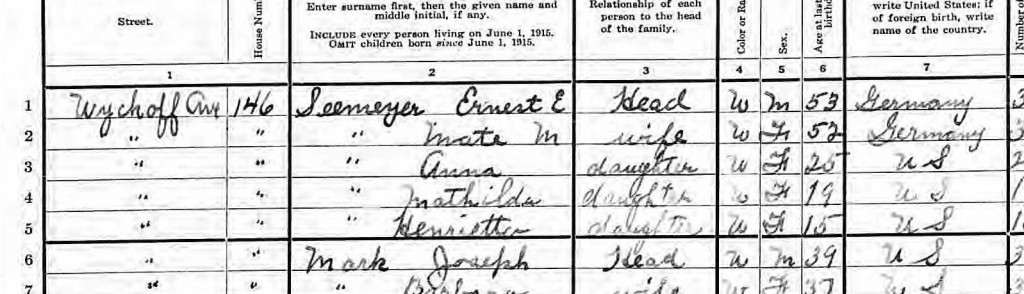 Street.
House Num
Enter surname first, then the given name and
middle initial, if any.
INCLUDE every person living on June 1, 1915.
OMIT children born since June 1, 1915.
Relationship of each
person to the head
of the family.
Color or Ra
Sex.
Age at last
birthd
write United States; if
of foreign birth, write
name of the country.
Number of
1 2 3 4 5 6 7
1 Wychoff Ave 146 Seemeyer Ernest E Head W M 53 Germany 3
2 " " " Mate M wife W F 52 Germany 3
3 " " " Anna daughter W F 25 U S 2
4 " " " Mathilda daughter W F 19 U S 1
5 " " " Henrietta daughter W F 15 U S 1
6 " " Mark Joseph Head W M 39 U S 3
7 " " " Barbara wife W F 37 U S 3